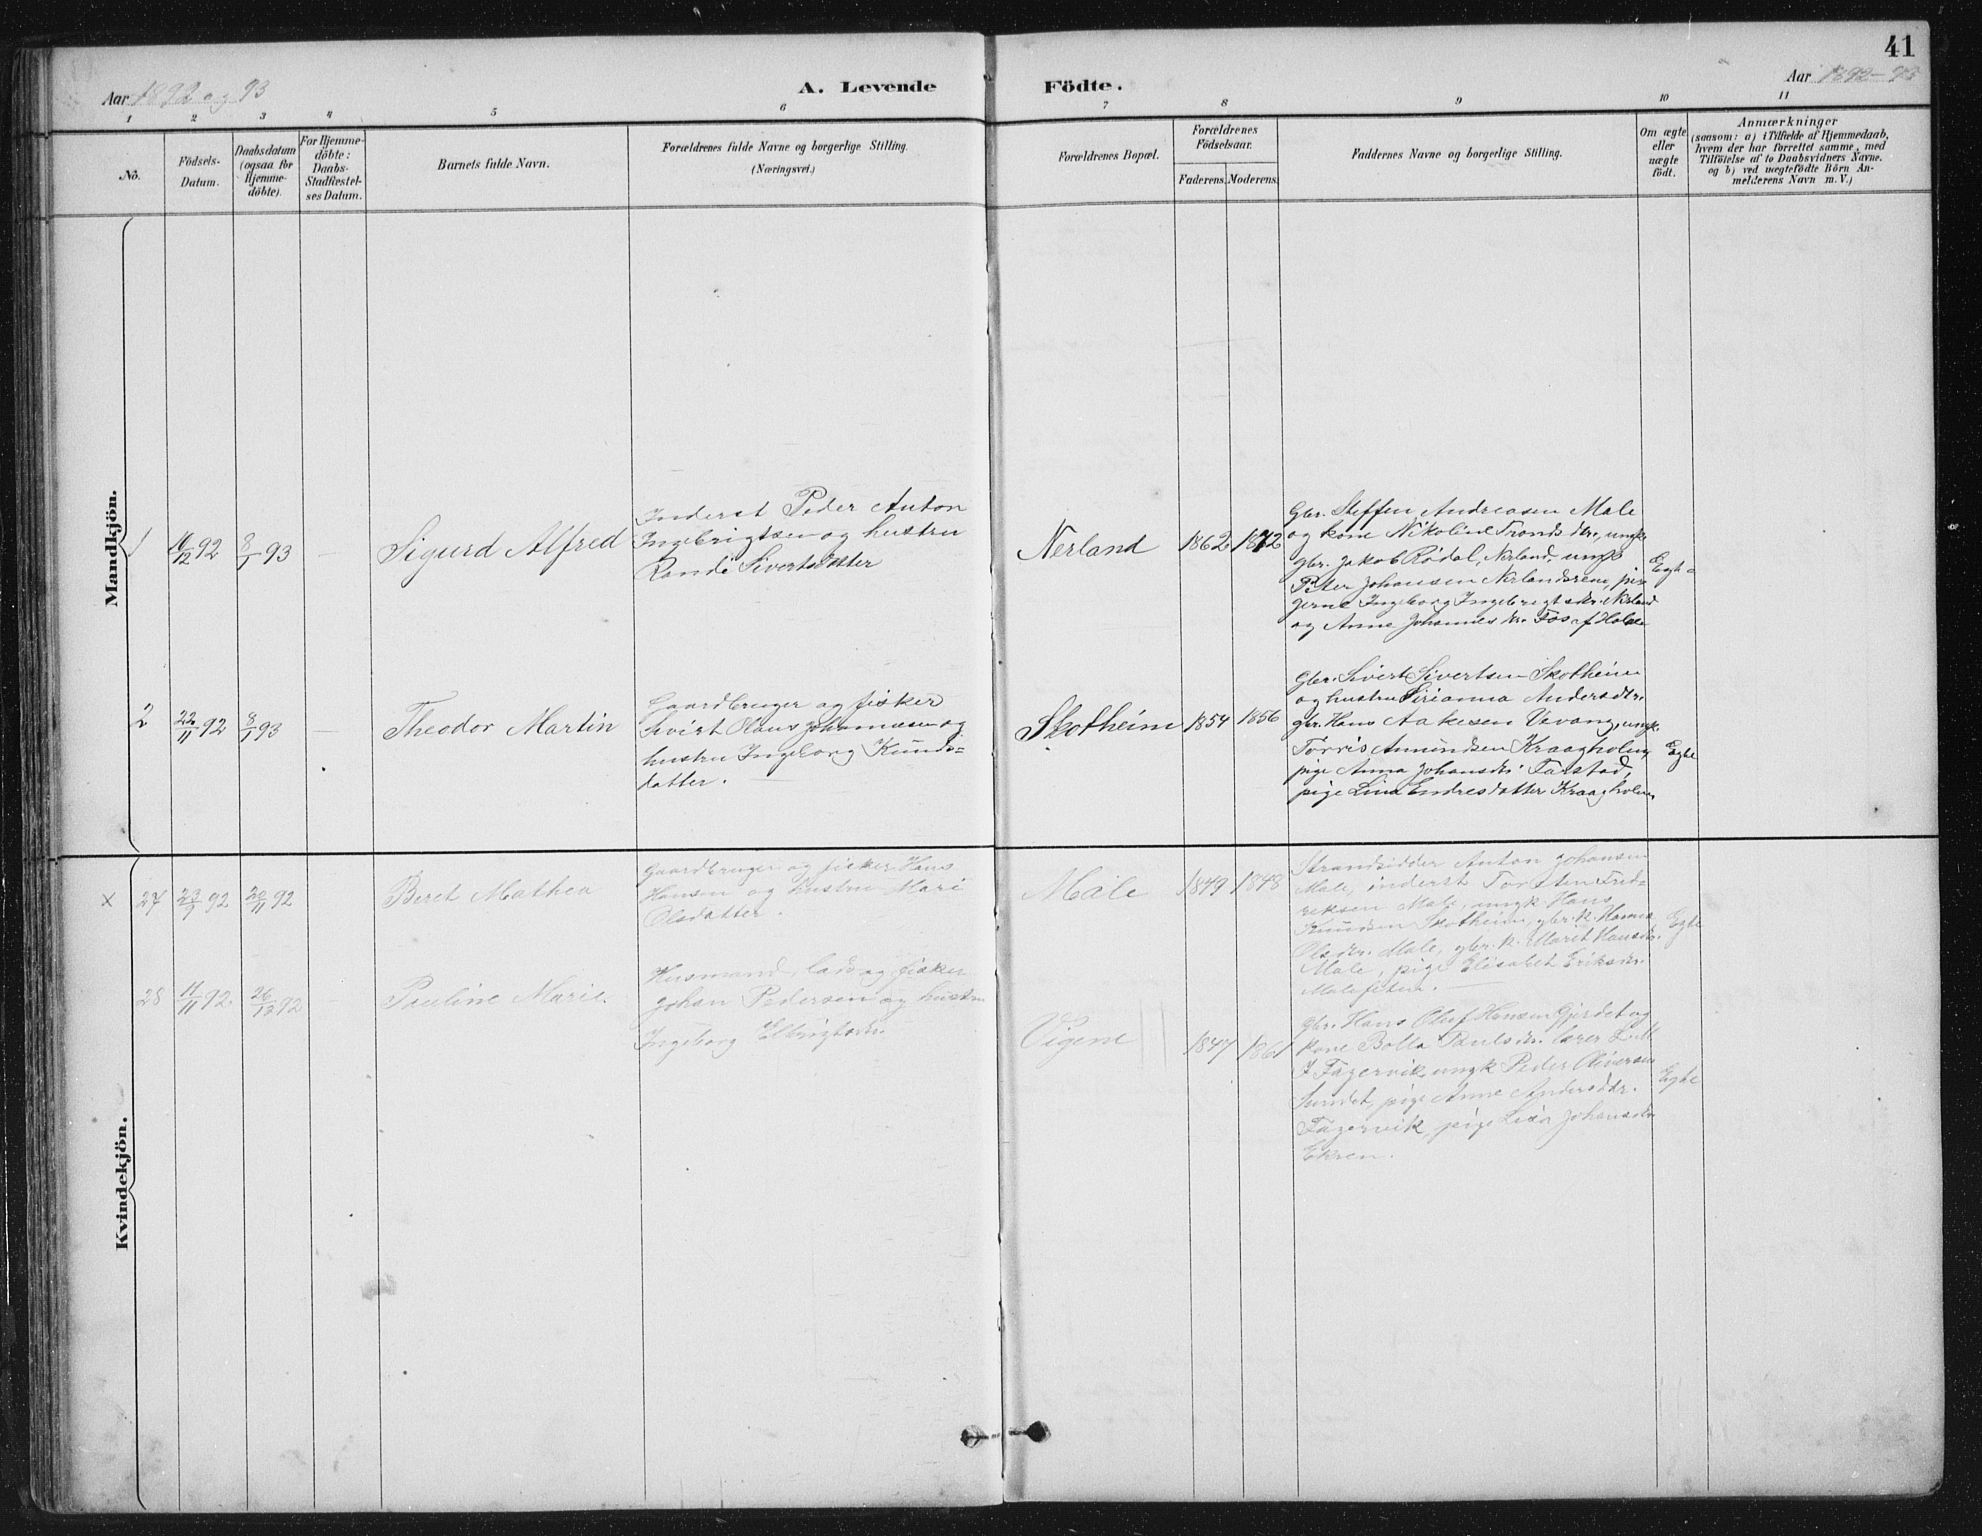 41
Aar 1892 og 93
A. Levende Födte.
Aar 1892-93
1 2 3 4 5 6 7 8 9 10 11
No.
Födsels-
Datum.
Daabsdatum
(ogsaa for
Hjemme-
döbte).
For Hjemme-
döbte:
Daabs-
Stadfæstel-
ses Datum.
Barnets fulde Navn.
Forældrenes fulde Navne og borgerlige Stilling.
(Næringsvei.)
Forældrenes Bopæl.
Forældrenes
Födselsaar.
Faderens. Moderens.
Faddernes Navne og borgerlige Stilling.
Om ægte
eller
uægte
födt.
Anmærkninger
(saasom: a) i Tilfælde af Hjemmedaab,
hvem der har forrettet samme, med
Tilföielse af to Daabsvidners Navne.
og b) ved uægtefödte Börn An-
melderens Navn m. V.)
Mandkjön.
1
16/12 92
8/1 93
Sigurd Alfred
Inderst Peder Anton
Ingebrigtsen og hustru
Randi Sivertsdatter
Nerland
1862
1872
Gbr. Steffen Andreasen Male
og kone Nikoline Tronds dtr, ungk
gbr. Jakob Rödal, Nerland, ungk
Peter Johansen Nerlandsrem, pi-
gerne Ingeborg Ingebrigtsdtr. Nerland
og Anne Johannesdtr.
Egte
2
22/11 92
8/1 93
Theodor Martin
Gaardbruger og fisker
Sivert Olaus Johannesen og
hustru Ingeborg Knuds-
datter.
Skotheim
1854
1856
Gbr. Sivert Sivertsen Skotheim
og hustru Sirianna Andersdtr.
gbr. Hans Aakesen Vevang, ungk.
Torris Amundsen Kraagholm,
pige Anna Johansdtr Farstad,
pige Lina Endresdatter Kraagholm.
Egte
Kvindekjön.
x
27
23/9 92
20/11 92
Beret Mathea
Gaardbruger og fisker Hans
Hansen og hustru Mari
Olsdatter.
Male
1849
1848
Strandsidder Anton Johansen
Male, inderst Torsten Fred-
riksen Male, ungk Hans
Knudsen Skotheim, gbr. k. Hanna
Olsdtr. Male, gbr. k. Marit Hansdtr.
Male, pige Elisabet Eriksdtr.
Malefeten.
Egte
28
11/11 92.
26/12 92
Pauline Marie.
Husmand, lods og fisker
Johan Pedersen og hustru
Ingeborg
Vigene
1847
1861
Gbr. Hans Oluf Hansen Gjerdet og
kone Bolla Paulsdtr. lærer
I Fagervik, ungk Peder Oliversen
Sundet, pige Anne Andersdtr.
Fagervik, pige Lisa Johansdtr
Ekren.
Egte